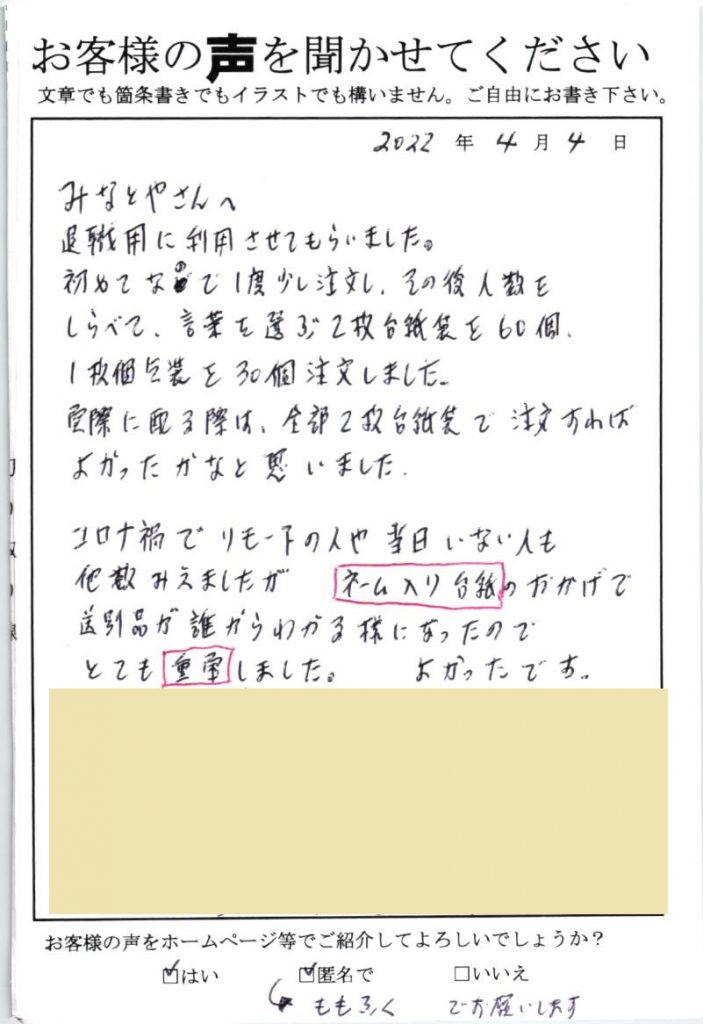 お客様の声を聞かせてください
文章でも箇条書きでもイラストでも構いません。ご自由にお書き下さい。
2022 年 4 月 4 日
みなとやさんへ
退職用に利用させてもらいました。
初めてなので1度少し注文し、その後人数を
しらべて、言葉を選ぶ2枚台紙袋を60個、
1枚個包装を30個注文しました。
実際に配る際は、全部2枚台紙袋で注文すれば
よかったかなと思いました.
コロナ禍でリモートの人や当日いない人も
他数みえましたが ネーム入り台紙のおかげで
送別品が誰からわかる様になったので
とても重宝しました。 よかったです。
お客様の声をホームページ等でご紹介してよろしいでしょうか？
☑はい ☑匿名で □いいえ
ももふく でお願いします